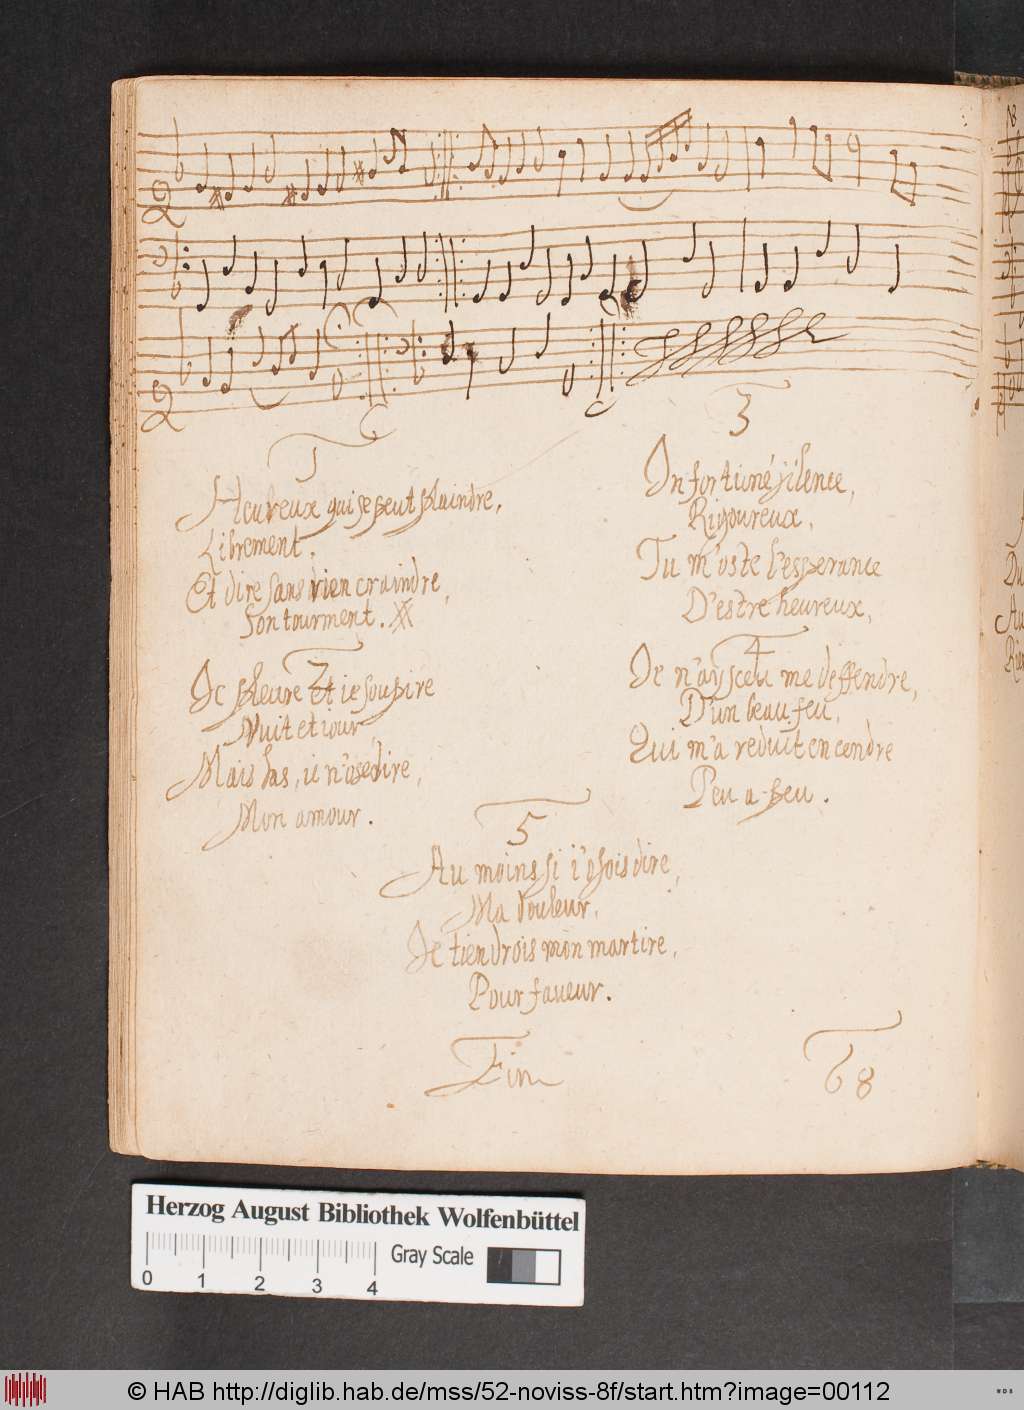 1
Heureux qui se peut plaindre,
Librement.
Et dire sans rien craindre,
Son tourment.
2
Je pleure et ie soupire
Nuit et iour,
Mais las, ie n'ose dire,
Mon amour.
3
Infortuné silence,
Rigoureux,
Tu m'oste l'esperance
D'estre heureux,
4
Je n'ay sceu me deffendre,
D'un beau feu,
Qui m'a reduit en cendre
Peu a peu.
5
Au moins si i'osois dire,
Ma douleur,
Je tiendrois mon martire,
Pour faveur.
Fin
68
Herzog August Bibliothek Wolfenbüttel
Gray Scale
0 1 2 3 4
© HAB http://diglib.hab.de/mss/52-noviss-8f/start.htm?image=00112